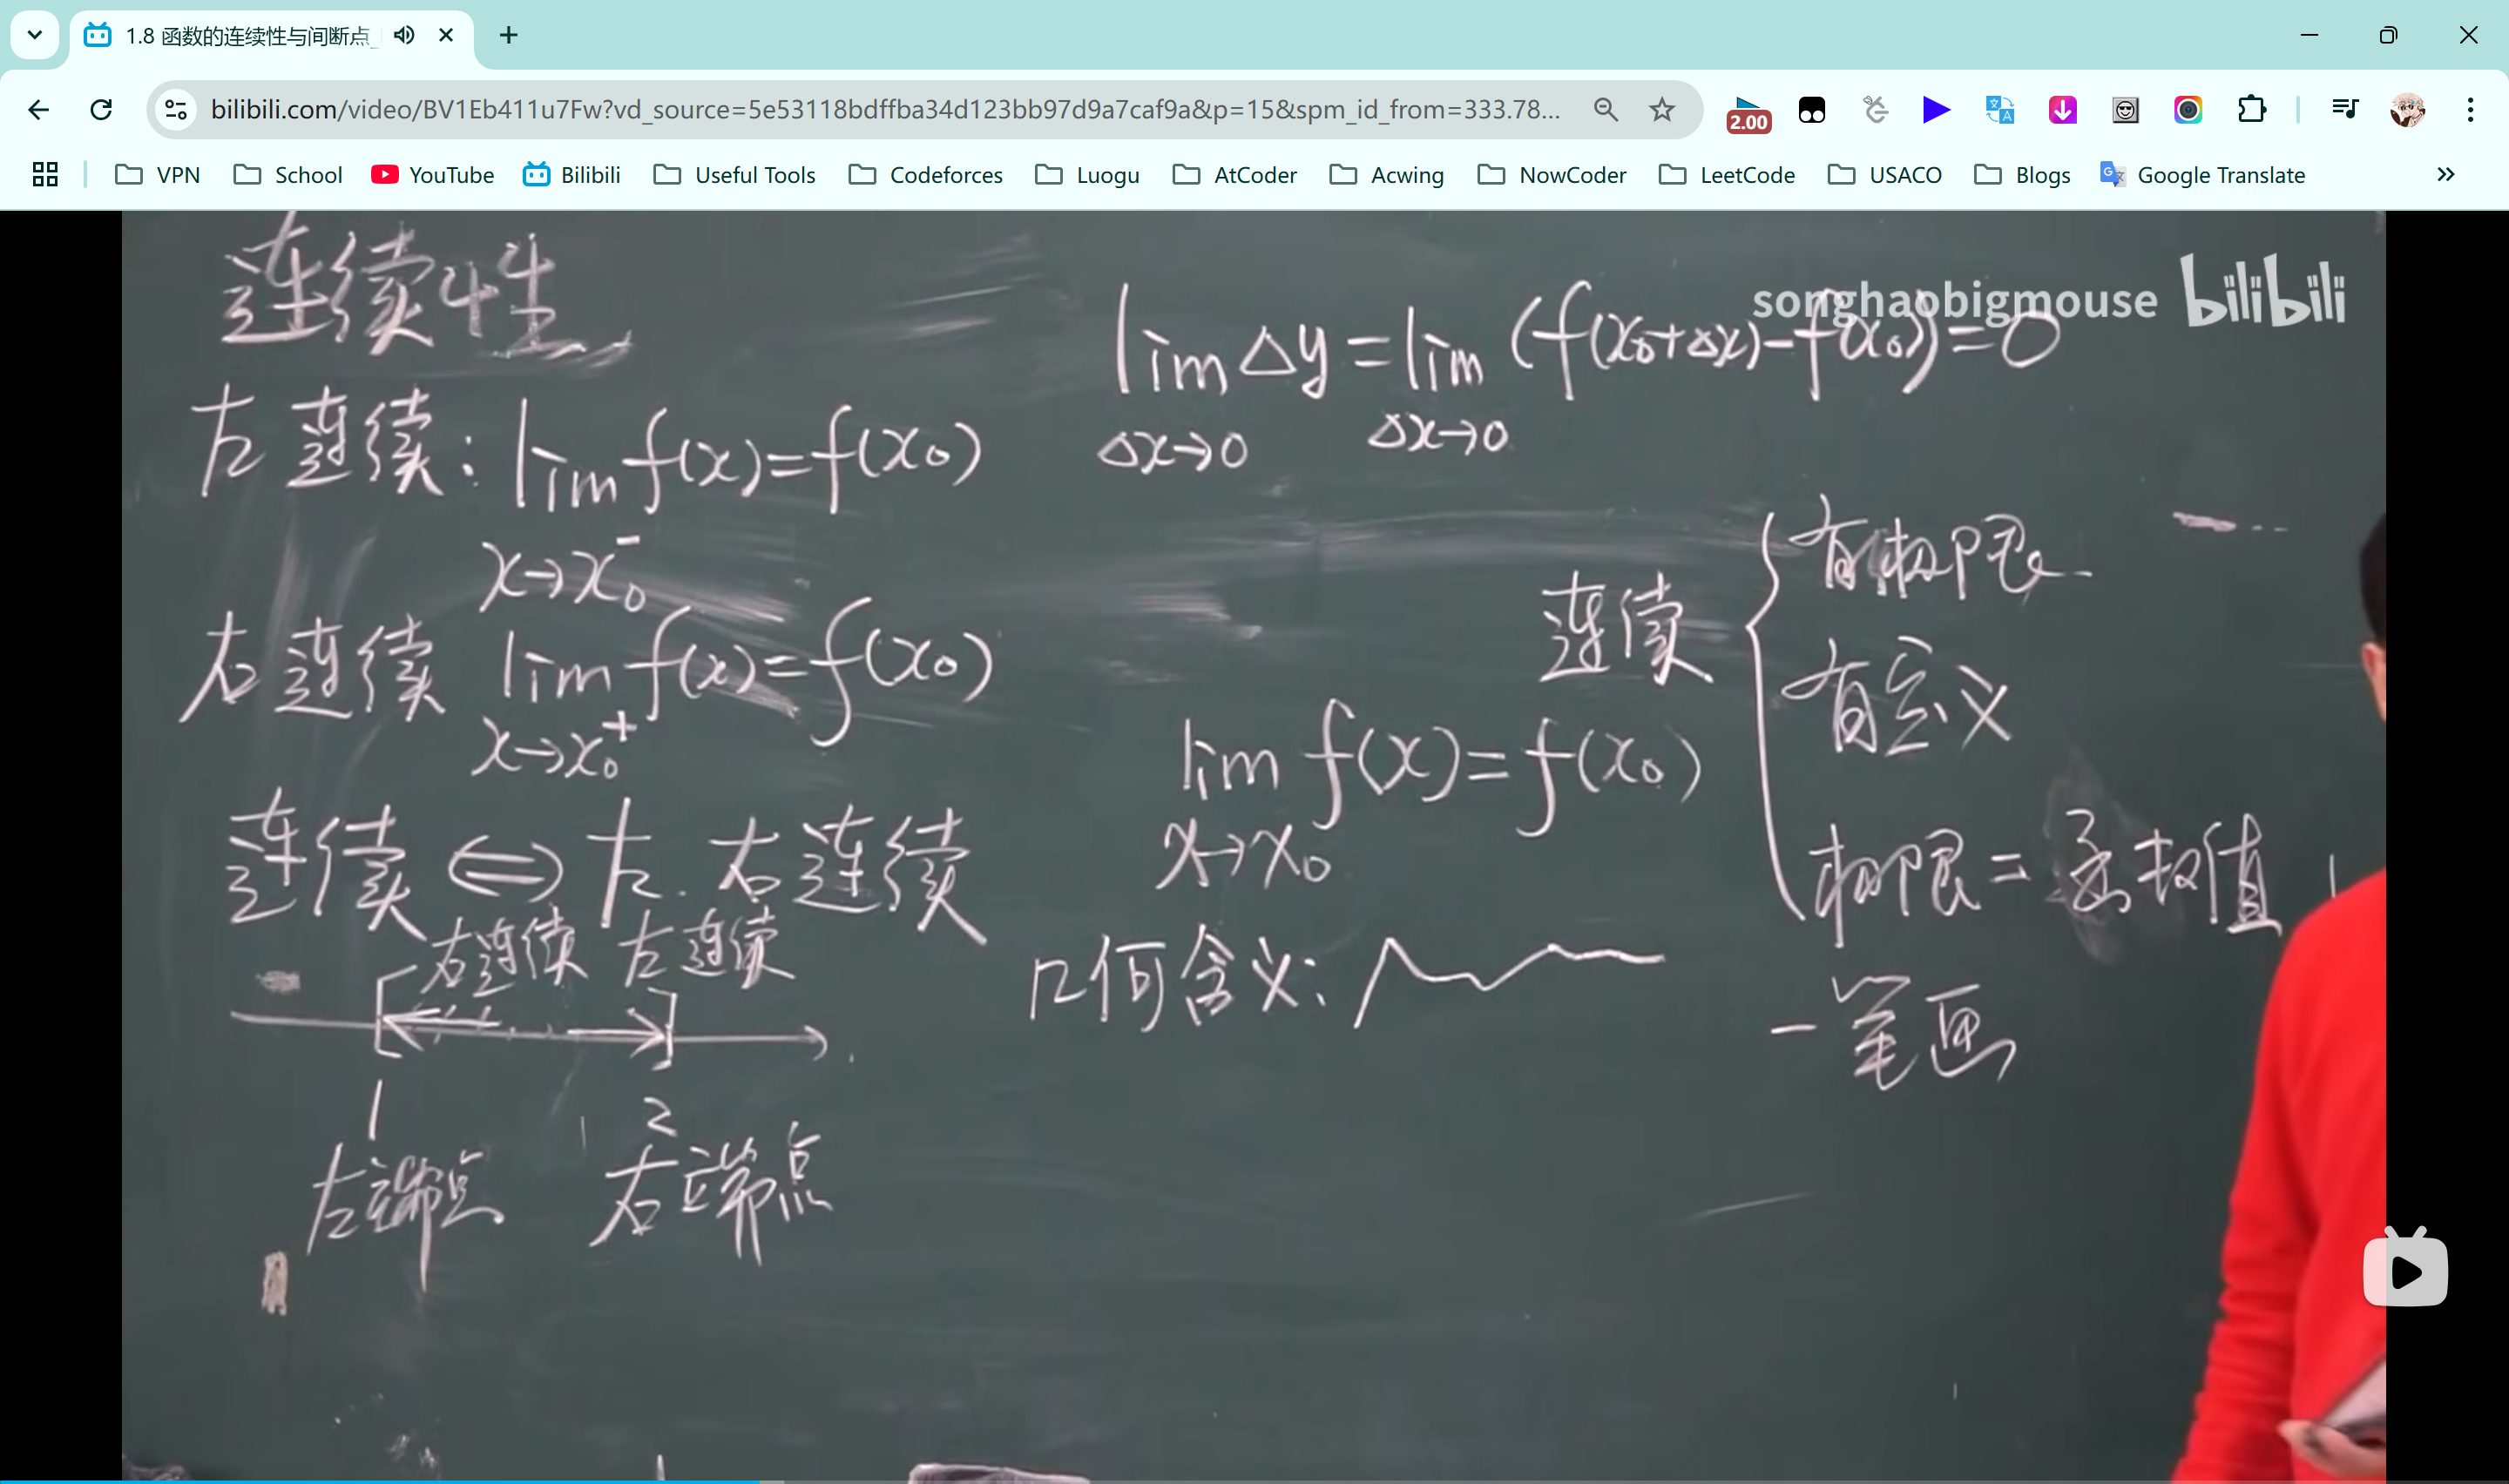 1.8 函数的连续性与间断点_
bilibili.com/video/BV1Eb411u7Fw?vd_source=5e53118bdffba34d123bb97d9a7caf9a&p=15&spm_id_from=333.78...
2.00
VPN School YouTube Bilibili Useful Tools Codeforces Luogu AtCoder Acwing NowCoder LeetCode USACO Blogs Google Translate
songhaobigmouse bilibili
连续性
左连续: lim f(x)=f(x₀)
x→x₀⁻
右连续 lim f(x)=f(x₀)
x→x₀⁺
连续 ⇔ 左.右连续
右连续 左连续
1 2
左端点 右端点
lim Δy = lim (f(x₀+Δx)-f(x₀))=0
Δx→0 Δx→0
连续 { 有极限
有定义
极限=函数值
lim f(x)=f(x₀)
x→x₀
几何含义:
一笔画